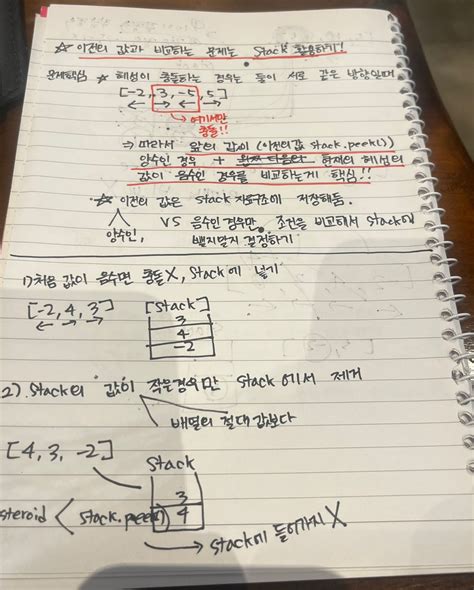 ☆ 이전의 값과 비교하는 문제는 Stack 활용하기!
문제핵심 ☆ 혜성이 충돌하는 경우는 둘이 서로 같은 방향일때
[-2, 3, -5, 5]
← → ← →
→ 여기서만 충돌!!
⇒ 따라서 앞의 값이 (이전의값 stack.peek())
양수인 경우 + 현재의 혜성의
값이 음수인 경우를 비교하는게 핵심!!
☆ 이전 값은 stack 자료구조에 저장해둠.
양수인, VS 음수인 경우만 조건을 비교해서 stack에
뺄지말지 결정하기
1) 처음 값이 음수면 충돌X, Stack에 넣기
[-2, 4, 3] [stack]
← → →
3
4
-2
2). Stack의 값이 작은경우만 Stack에서 제거
배열의 절대값보다
[4, 3, -2] Stack
3
steroid < stack.peek() 4
→ stack에 들어가지 X